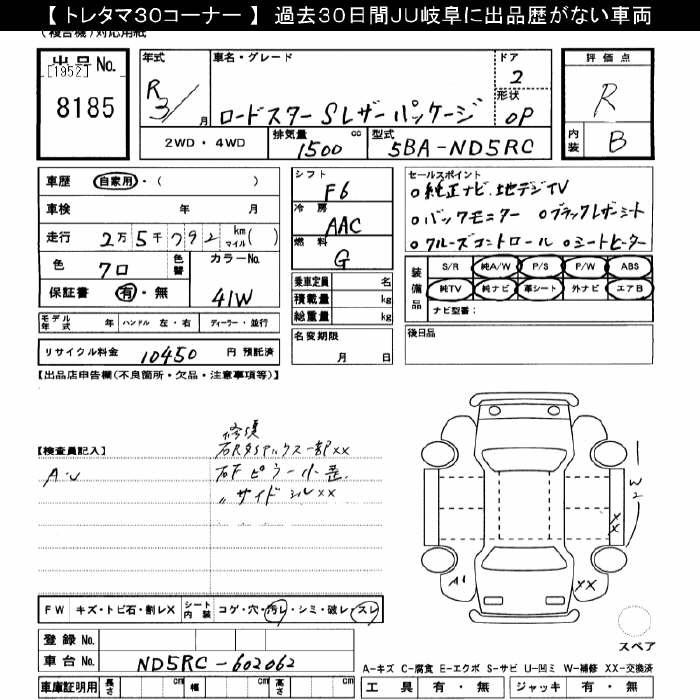 【 トレタマ30コーナー 】 過去30日間JU岐阜に出品歴がない車両
(複合機)対応用紙
出品 No.
[1952]
8185
年式
R3/ 月
車名・グレード
ロードスター Sレザーパッケージ
ドア
2
形状
OP
2WD・4WD
排気量 1500 cc
型式 5BA-ND5RC
評価点
R
内装 B
車歴 自家用・( )
車検 年 月
走行 2万5千792 km マイル ( )
色 クロ 色替
カラーNo. 41W
保証書 有・無
シフト F6
冷房 AAC
燃料 G
乗車定員 名
積載量 kg
総重量 kg
セールスポイント
o純正ナビ.地デジTV
oバックモニター oブラックレザーシート
oクルーズコントロール oシートヒーター
装備品
S/R 純A/W P/S P/W ABS
純TV 純ナビ 革シート 外ナビ エアB
ナビ型番:
モデル年式 年 ハンドル 左・右 ディーラー・並行
名変期限
月 日
後日品
リサイクル料金 10450 円 預託済
【出品店申告欄(不良箇所・欠品・注意事項等)】
修復
【検査員記入】
A·U
W2
XX
A1
XX
FW キズ・トビ石・割レX シート内装 コゲ・穴・汚レ・シミ・破レ・スレ
スペア
登録 No.
車台 No. ND5RC-602062
A-キズ C-腐食 E-エクボ S-サビ U-凹ミ W-補修 XX-交換済
車庫証明用 長さ cm 幅 cm 高さ cm
工具 有・無 ジャッキ 有・無